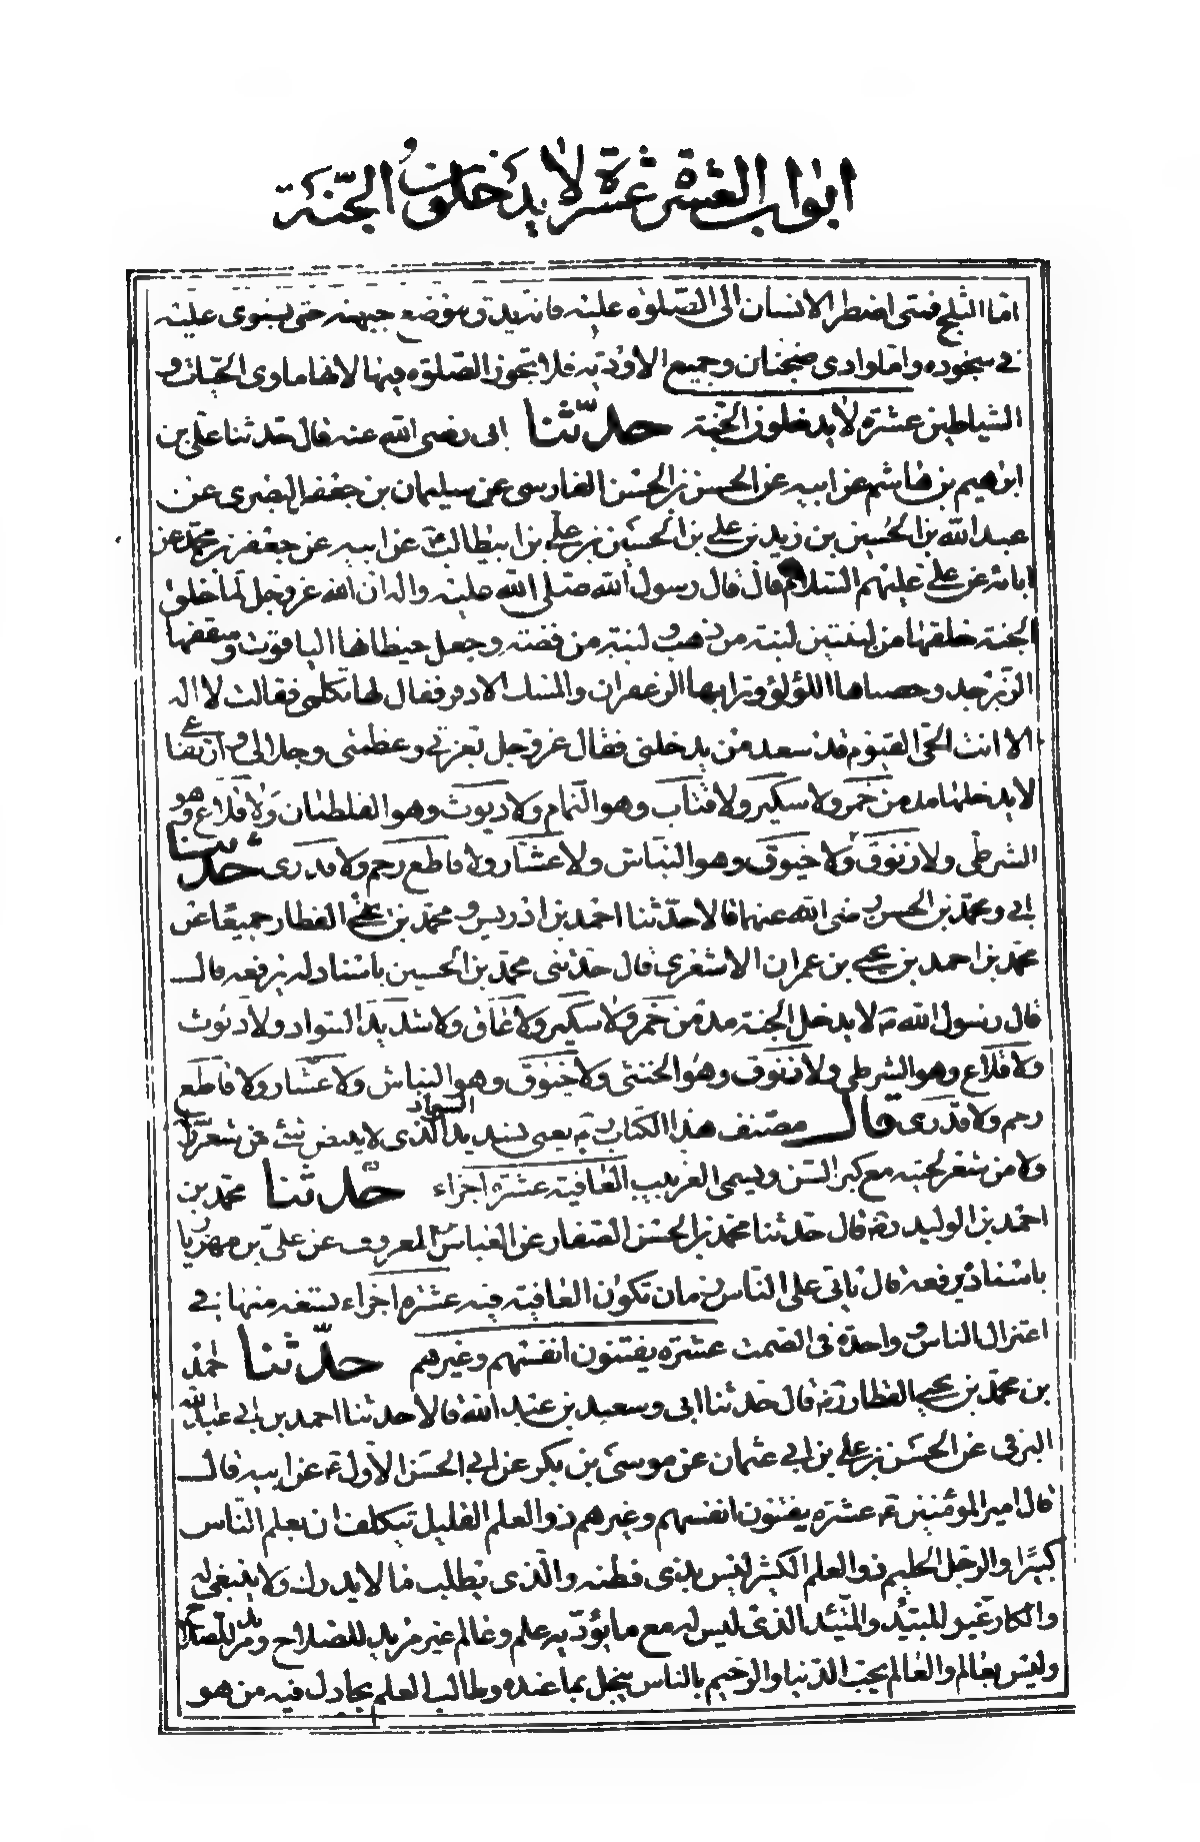 ابواب العشرة عشرة لا يدخلون الجنة
اما الثلج فمتى اضطر الانسان الى الصلوة عليه فانه يدق موضع جبهته حتى يستوى عليه
في سجوده واما وادى ضجنان وجميع الاودية فلا تجوز الصلوة فيها لانها ماوى الحيات و
الشياطين عشرة لا يدخلون الجنة حدثنا ابى رضى الله عنه قال حدثنا على بن
ابرهيم بن هاشم عن ابيه عن الحسن بن الحسن الفارسى عن سليمان بن جعفر البصرى عن
عبد الله بن الحسين بن زيد بن على بن الحسين بن على بن ابيطالب عن ابيه عن جعفر بن محمد عن
ابائه عن على عليهم السلام قال قال رسول الله صلى الله عليه واله ان الله عز وجل لما خلق
الجنة خلقها من لبنتين لبنة من ذهب و لبنة من فضة وجعل حيطانها الياقوت وسقفها
الزبرجد وحصباها اللؤلؤ وترابها الزعفران والمسك الاذفر فقال لها تكلمى فقالت لا اله
الا انت الحى القيوم قد سعد من يدخلنى فقال عز وجل بعزتى وعظمتى وجلالى وارتفاعى
لا يدخلها مدمن خمر ولا سكير ولا قتات وهو النمام ولا ديوث وهو القلطبان ولا قلاع وهو
الشرطى ولا زنوق ولا خيوف وهو النباش ولا عشار ولا قاطع رحم ولا قدرى حدثنا
ابى ومحمد بن الحسن رضى الله عنهما قالا حدثنا احمد بن ادريس و محمد بن يحيى العطار جميعا عن
محمد بن احمد بن يحيى بن عمران الاشعرى قال حدثنى محمد بن الحسين باسناد له يرفعه قال
قال رسول الله ص لا يدخل الجنة مدمن خمر ولا سكير ولا عاق ولا شديد السواد ولا ديوث
ولا قلاع وهو الشرطى ولا زنوق وهو الخنثى ولا خيوف وهو النباش ولا عشار ولا قاطع
رحم ولا قدرى قال مصنف هذا الكتاب ره يعنى بشديد السواد الذى لا يبيض شئ من شعر راسه
ولا من شعر لحيته مع كبر السن ويسمى الغربيب العافية عشرة اجزاء حدثنا محمد بن
احمد بن الوليد ره قال حدثنا محمد بن الحسن الصفار عن العباس بن المعروف عن على بن مهزيار
باسناد يرفعه قال ياتى على الناس زمان تكون العافية فيه عشرة اجزاء تسعة منها فى
اعتزال الناس و واحدة فى الصمت عشرة يفتنون انفسهم وغيرهم حدثنا احمد
بن محمد بن يحيى العطار ره قال حدثنا ابى وسعيد بن عبد الله قالا حدثنا احمد بن ابى عبد الله
البرقى عن الحسن بن على بن ابى عثمان عن موسى بن بكر عن ابى الحسن الاول ع عن ابيه قال
قال امير المؤمنين ع عشرة يفتنون انفسهم وغيرهم ذو العلم القليل يتكلف ان يعلم الناس
كثيرا والرجل الحليم ذو العلم الكثير ليس بذى فطنة والذى يطلب ما لا يدرك ولا ينبغى له
والكاد غير المتئد والمتئد الذى ليس له مع تؤدته علم وعالم غير مريد للصلاح ومريد للصلاح
وليس بعالم والعالم يحب الدنيا والرحيم بالناس يبخل بما عنده وطالب العلم يجادل فيه من هو